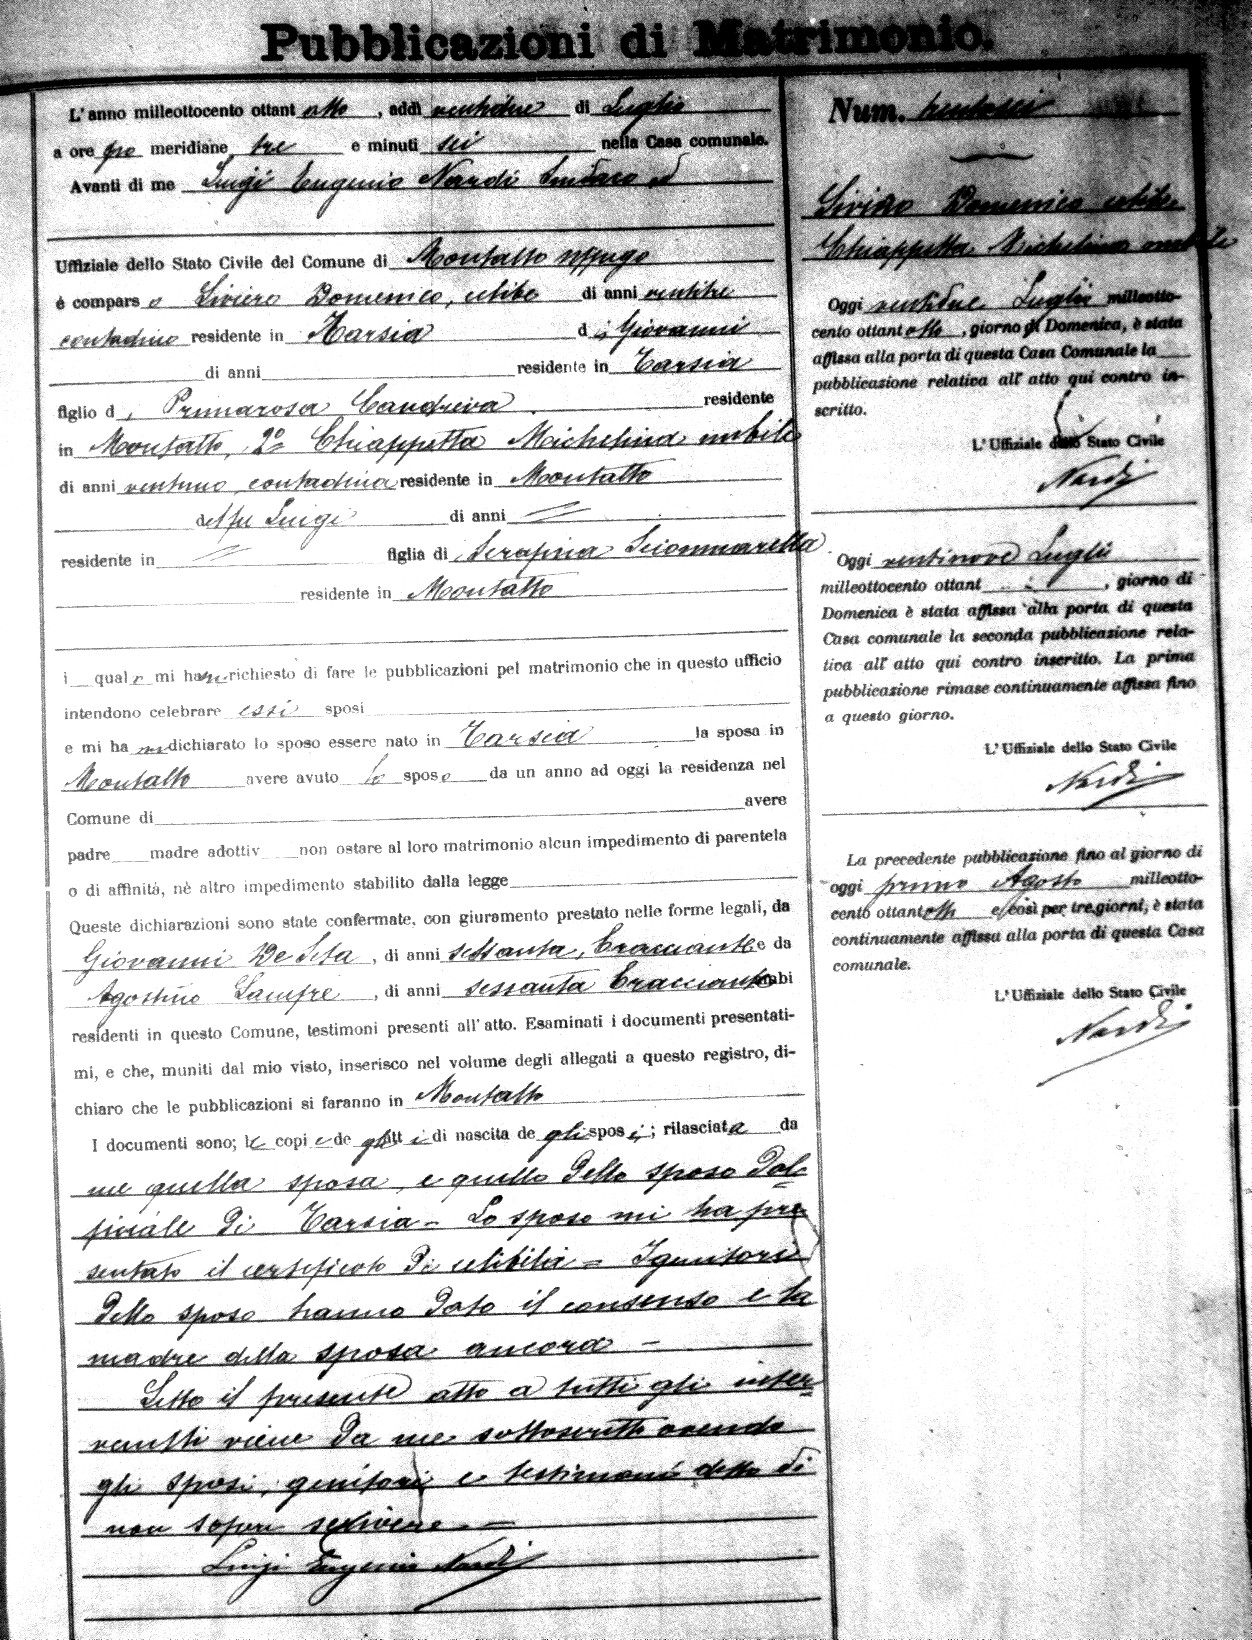 Pubblicazioni di Matrimonio.
L'anno milleottocento ottant otto, addì ventidue di Luglio
a ore po meridiane tre e minuti sei nella Casa comunale.
Avanti di me Luigi Eugenio Nardi Sindaco ed
Uffiziale dello Stato Civile del Comune di Montalto Uffugo
è comparso Siviero Domenico, celibe di anni ventitre
contadino residente in Tarsia di Giovanni
di anni residente in Tarsia
figlio di Primarosa Candreva residente
in Montalto, 2° Chiappetta Michelina nubile
di anni ventuno contadina residente in Montalto
del fu Luigi di anni =
residente in = figlia di Serafina Sciommarella
residente in Montalto
i quali mi hanno richiesto di fare le pubblicazioni pel matrimonio che in questo ufficio
intendono celebrare essi sposi
e mi hanno dichiarato lo sposo essere nato in Tarsia la sposa in
Montalto avere avuto lo sposo da un anno ad oggi la residenza nel
Comune di avere
padre madre adottiv non ostare al loro matrimonio alcun impedimento di parentela
o di affinità, nè altro impedimento stabilito dalla legge
Queste dichiarazioni sono state confermate, con giuramento prestato nelle forme legali, da
Giovanni De Seta, di anni sessanta, bracciante e da
Agostino, di anni sessanta bracciante ambi
residenti in questo Comune, testimoni presenti all'atto. Esaminati i documenti presentati-
mi, e che, muniti dal mio visto, inserisco nel volume degli allegati a questo registro, di-
chiaro che le pubblicazioni si faranno in Montalto
I documenti sono; le copie de gli atti di nascita de gli sposi; rilasciata da
me quella sposa, e quello dello sposo dal-
fiziale di Tarsia - Lo sposo mi ha pre
sentato il certificato di celibità = I genitori
dello sposo hanno dato il consenso e la
madre della sposa ancora -
Letto il presente atto a tutti gli inter-
venuti viene da me sottoscritto avendo
gli sposi, genitori e testimoni detto di
non saper scrivere. -
Luigi Eugenio Nardi
Num. trentasei
Siviero Domenico celibe
Chiappetta Michelina nubile
Oggi ventidue Luglio milleotto-
cento ottantotto, giorno di Domenica, è stata
affissa alla porta di questa Casa Comunale la
pubblicazione relativa all'atto qui contro in-
scritto.
L'Uffiziale dello Stato Civile
Nardi
Oggi ventinove Luglio
milleottocento ottant, giorno di
Domenica è stata affissa alla porta di questa
Casa comunale la seconda pubblicazione rela-
tiva all'atto qui contro inscritto. La prima
pubblicazione rimase continuamente affissa fino
a questo giorno.
L'Uffiziale dello Stato Civile
Nardi
La precedente pubblicazione fino al giorno di
oggi primo Agosto milleotto-
cento ottantotto e così per tre giorni, è stata
continuamente affissa alla porta di questa Casa
comunale.
L'Uffiziale dello Stato Civile
Nardi